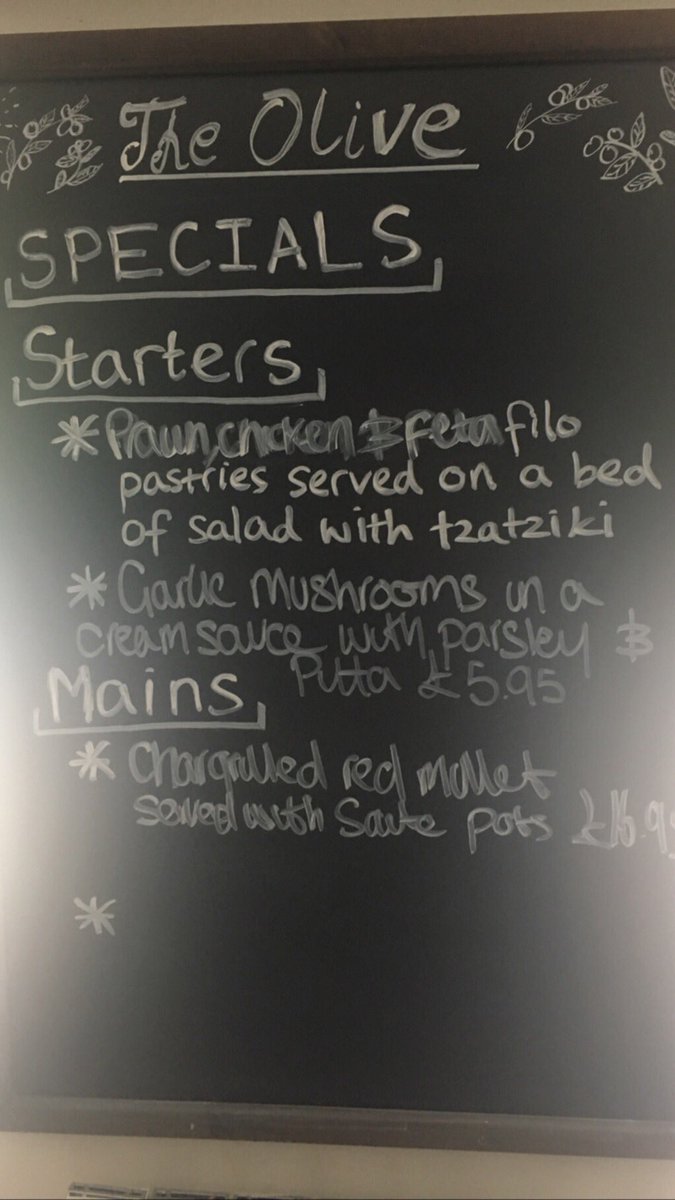 The Olive
SPECIALS
Starters
* Prawn, chicken & feta filo
pastries served on a bed
of salad with tzatziki
* Garlic mushrooms in a
cream sauce with parsley &
Pitta £5.95
Mains
* Chargrilled red mullet
served with Saute pots £16.95
*